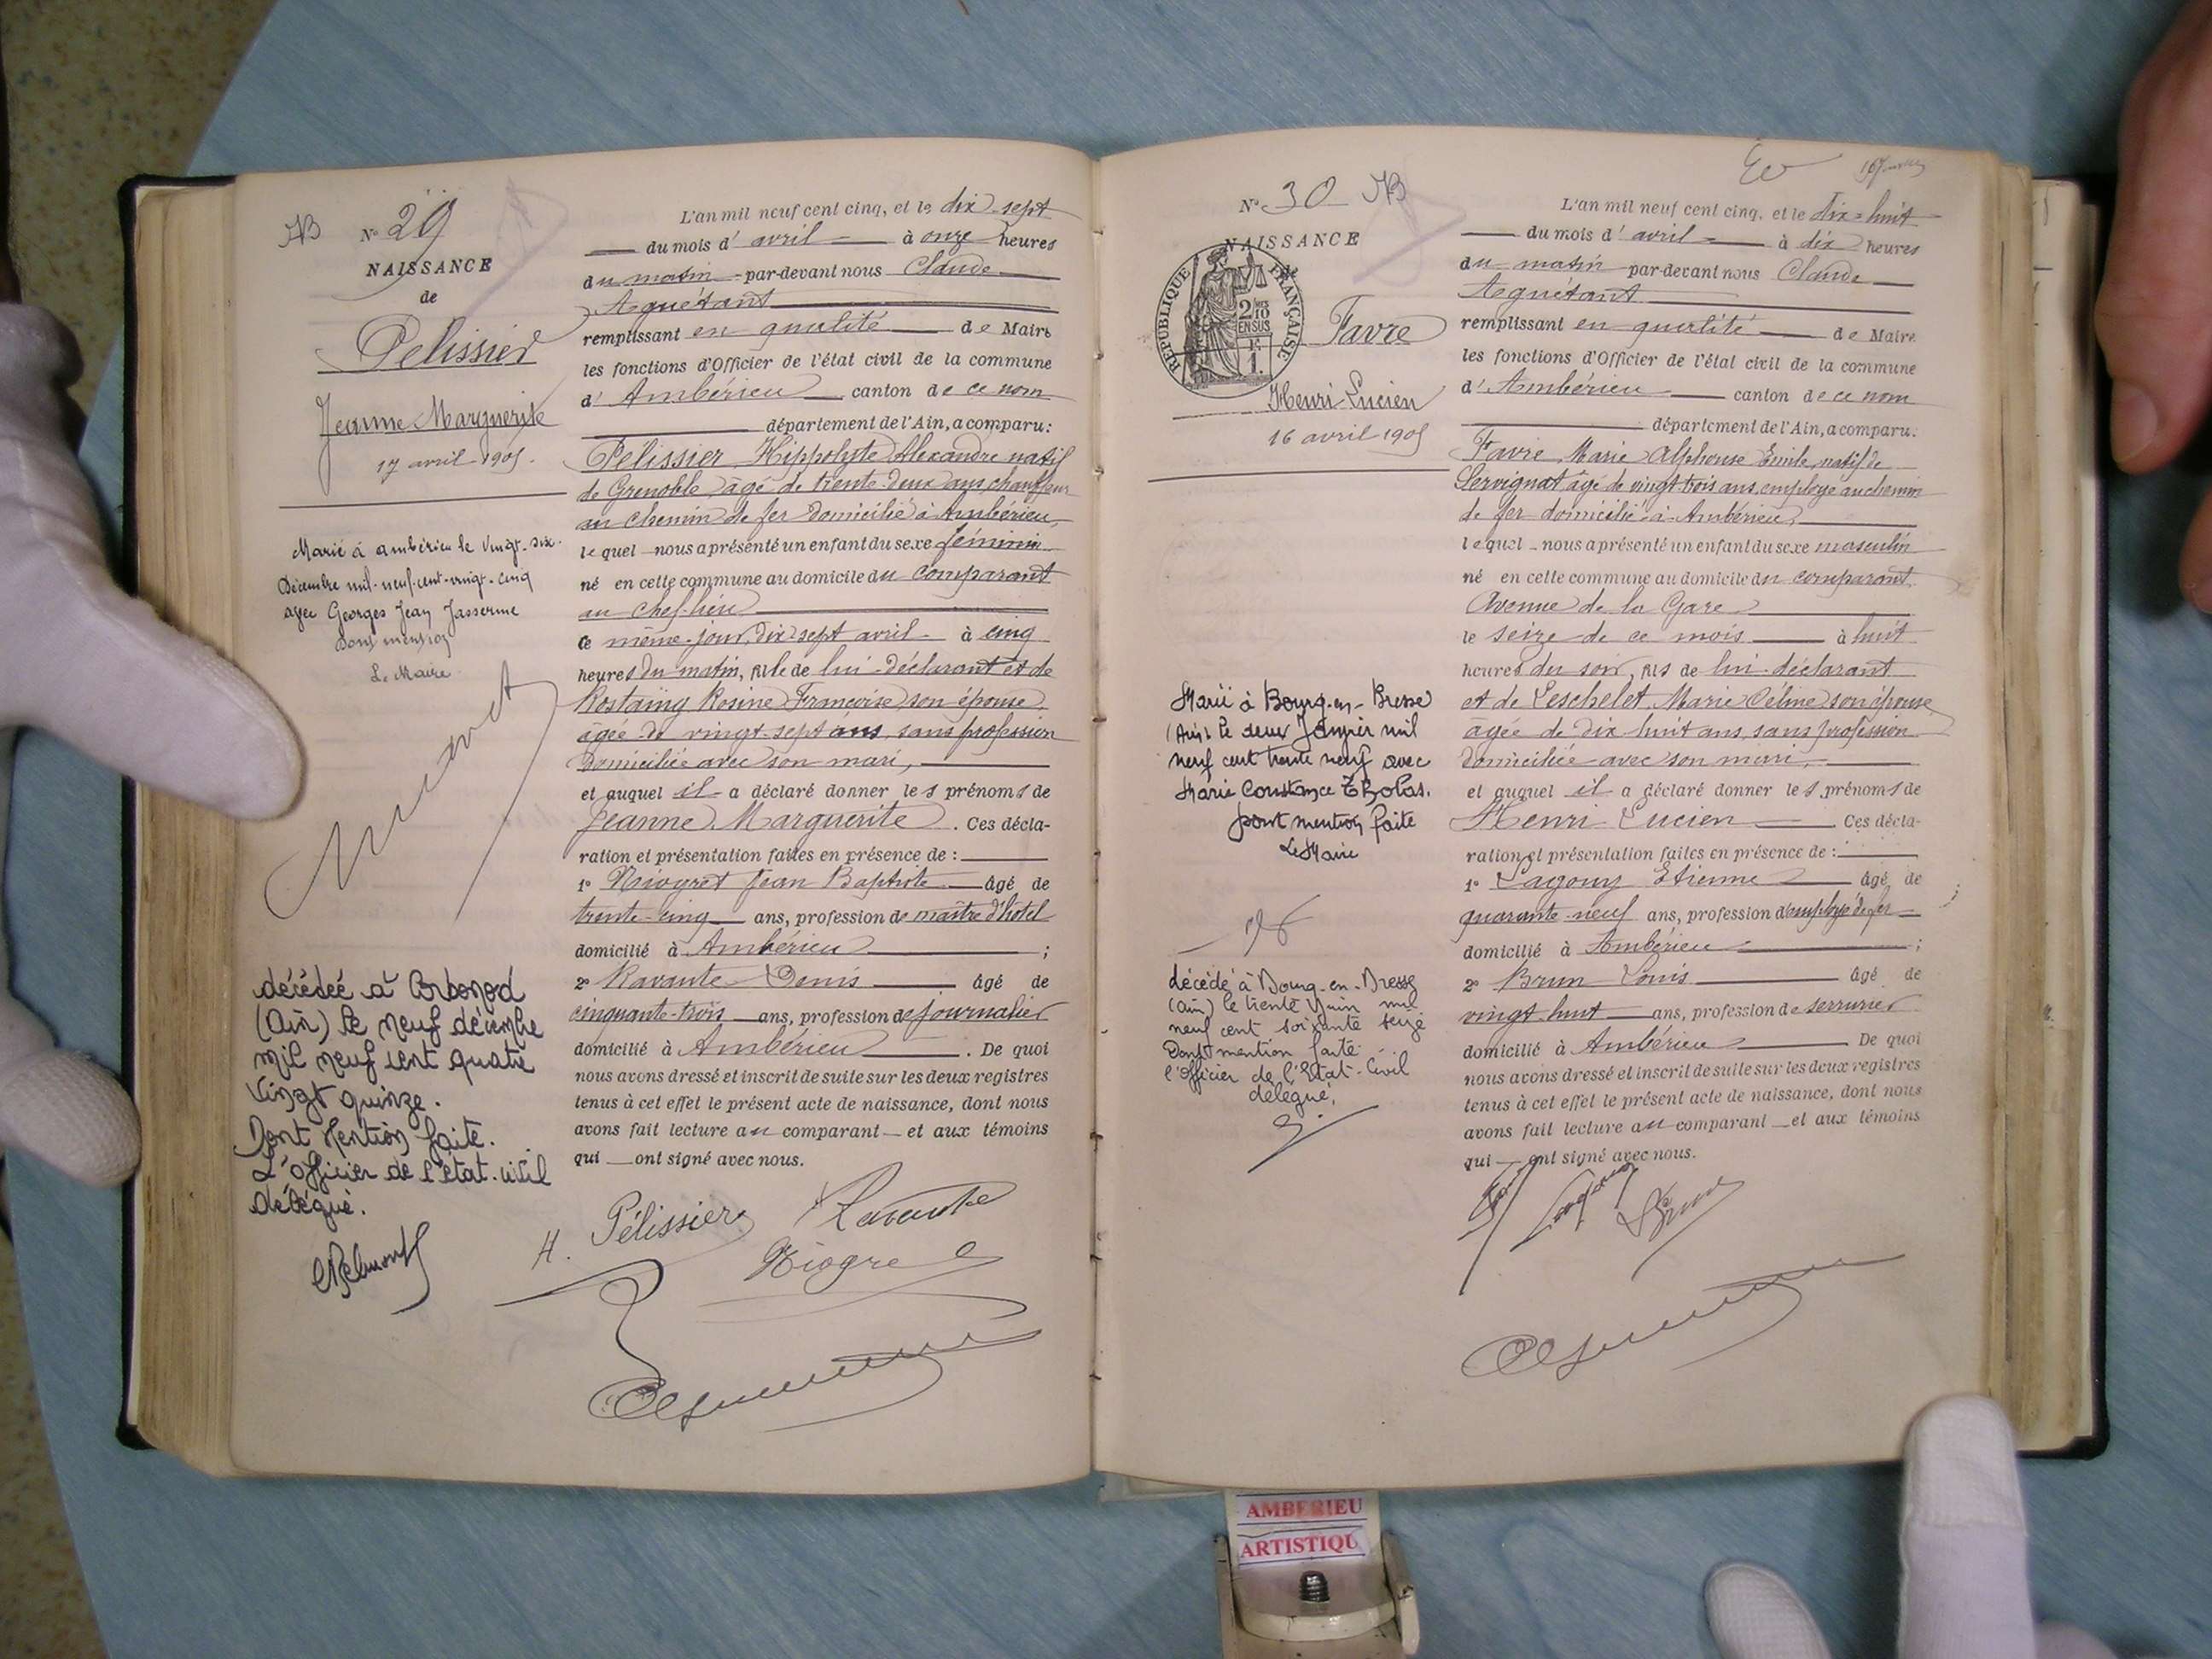 N° 29
NAISSANCE
de
Pelissier
Jeanne Marguerite
17 avril 1905.
Marié à ambérieu le vingt-six
Décembre mil-neuf-cent-vingt-cinq
avec Georges Jean Jasserme
Dont mention
Le Maire
décédée à Corbonod
(Ain) le neuf décembre
mil neuf cent quatre
vingt quinze.
Dont Mention faite.
L'officier de l'état-civil
délégué.
L'an mil neuf cent cinq, et le dix-sept
du mois d'avril à onze heures
du matin par-devant nous Claude
Aguétant
remplissant en qualité de Maire
les fonctions d'Officier de l'état civil de la commune
d'Ambérieu canton de ce nom
département de l'Ain, a comparu:
Pélissier Hippolyte Alexandre natif
de Grenoble âgé de trente-deux ans, chauffeur
au chemin de fer domicilié à Ambérieu,
lequel nous a présenté un enfant du sexe féminin
né en cette commune au domicile du comparant
au chef-lieu
ce même jour, dix sept avril à cinq
heures du matin, fille de lui-déclarant et de
Rostaing Rosine Françoise son épouse
âgée de vingt-sept ans, sans profession
domiciliée avec son mari,
et auquel il a déclaré donner les prénoms de
Jeanne Marguerite. Ces décla-
ration et présentation faites en présence de :
1° Niogret Jean Baptiste âgé de
trente-cinq ans, profession de maître d'hôtel
domicilié à Ambérieu ;
2° Ravante Denis âgé de
cinquante-trois ans, profession de journalier
domicilié à Ambérieu. De quoi
nous avons dressé et inscrit de suite sur les deux registres
tenus à cet effet le présent acte de naissance, dont nous
avons fait lecture au comparant et aux témoins
qui ont signé avec nous.
H. Pélissier Ravante
Niogret
N° 30
NAISSANCE
RÉPUBLIQUE FRANÇAISE
2/10 EN SUS
Favre
Henri Lucien
16 avril 1905
Marié à Bourg-en-Bresse
(Ain) le deux Janvier mil
neuf cent trente neuf avec
Marie Constance
dont mention faite
Le Maire
décédé à Bourg-en-Bresse
(Ain) le trente Juin mil
neuf cent soixante seize
Dont mention faite
l'officier de l'Etat-Civil
délégué,
L'an mil neuf cent cinq, et le dix-huit
du mois d'avril à dix heures
du matin par-devant nous Claude
Aguétant
remplissant en qualité de Maire
les fonctions d'Officier de l'état civil de la commune
d'Ambérieu canton de ce nom
département de l'Ain, a comparu:
Favre Marie Alphonse Emile, natif de
Servignat âgé de vingt-trois ans, employé au chemin
de fer domicilié à Ambérieu,
lequel nous a présenté un enfant du sexe masculin
né en cette commune au domicile du comparant
Avenue de la Gare
le seize de ce mois à huit
heures du soir, fils de lui-déclarant
et de Leschelet Marie Céline son épouse
âgée de dix huit ans, sans profession
domiciliée avec son mari,
et auquel il a déclaré donner les prénoms de
Henri Lucien Ces décla-
ration et présentation faites en présence de :
1° Lagouy Etienne âgé de
quarante-neuf ans, profession d'employé de fer
domicilié à Ambérieu ;
2° Brun Louis âgé de
vingt huit ans, profession de serrurier
domicilié à Ambérieu De quoi
nous avons dressé et inscrit de suite sur les deux registres
tenus à cet effet le présent acte de naissance, dont nous
avons fait lecture au comparant et aux témoins
qui ont signé avec nous.
AMBERIEU
ARTISTIQU